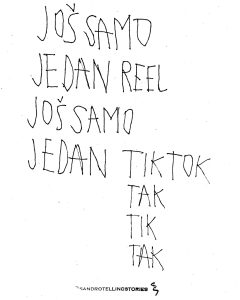 JOŠ SAMO
JEDAN REEL
JOŠ SAMO
JEDAN TIKTOK
TAK
TIK
TAK
SANDROTELLINGSTORIES